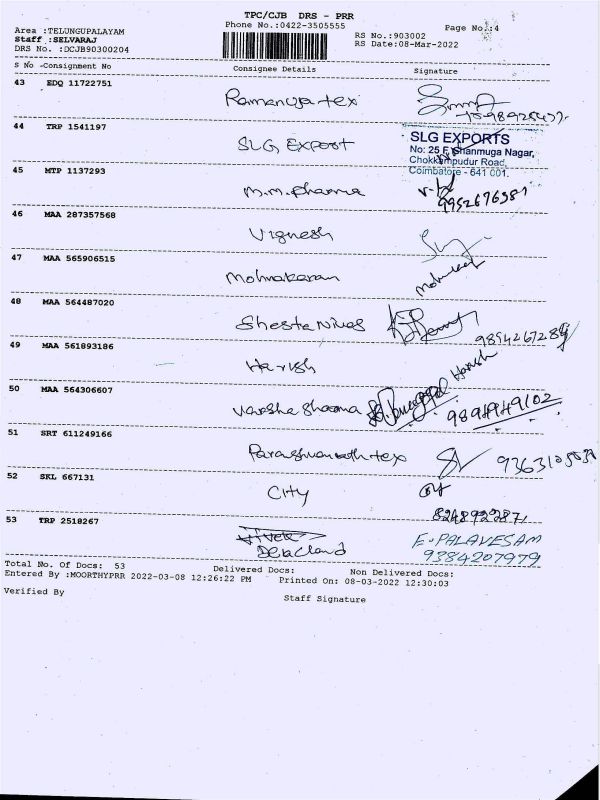 TPC/CJB DRS - PRR
Phone No.:0422-3505555
Page No.:4
Area :TELUNGUPALAYAM
Staff :SELVARAJ
RS No.:903002
DRS No. :DCJB90300204
RS Date:08-Mar-2022
S No Consignment No Consignee Details Signature
43 EDQ 11722751 Ramanuja tex
44 TRP 1541197 SLG Export
SLG EXPORTS
No: 25 E, Shanmuga Nagar,
Chokkampudur Road,
Coimbatore - 641 001.
45 MTP 1137293 M.M. Pharma
9952676381
46 MAA 287357568 Vignesh
47 MAA 565906515 Mohnakaran
48 MAA 564487020
49 MAA 561893186 Harish Harish
50 MAA 564306607 Varsha Sharma 9894949102
51 SRT 611249166 Parashwanath tex
52 SKL 667131 City
8248922871
53 TRP 2518267
E. PALAVESAM
9384207979
Total No. Of Docs: 53 Delivered Docs: Non Delivered Docs:
Entered By :MOORTHYPRR 2022-03-08 12:26:22 PM Printed On: 08-03-2022 12:30:03
Verified By Staff Signature